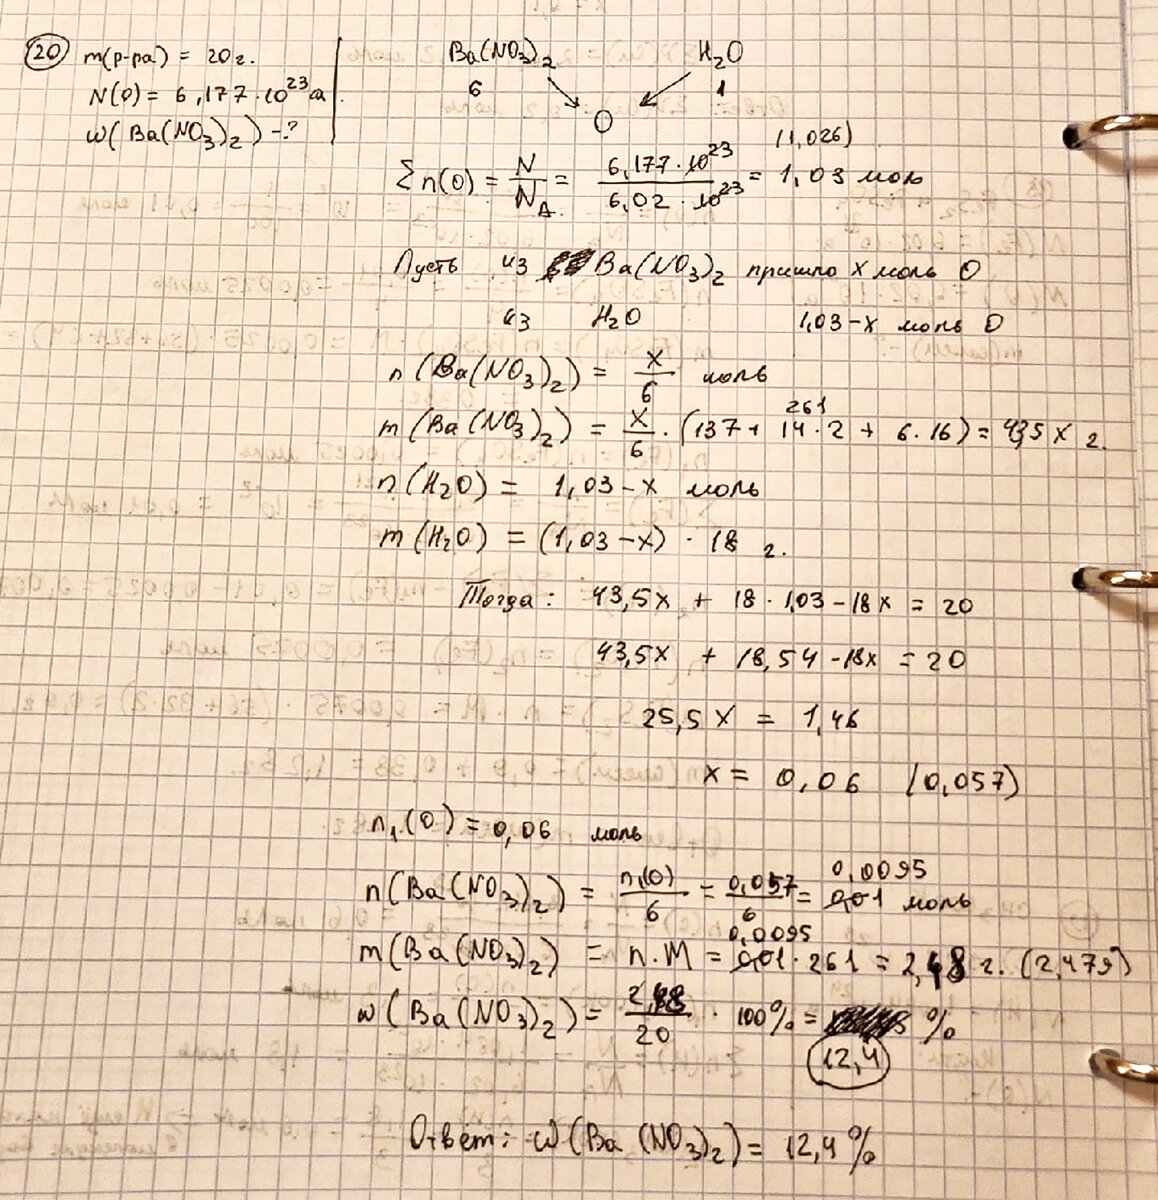 20 m(р-ра) = 20г.
N(O) = 6,177·10²³а
ω(Ba(NO₃)₂) -?
Ba(NO₃)₂ H₂O
6 1
O
(1,026)
Σn(O) = N/N_A = 6,177·10²³/6,02·10²³ = 1,03 моль
Пусть из Ba(NO₃)₂ пришло x моль O
из H₂O 1,03-x моль O
n(Ba(NO₃)₂) = x/6 моль
261
m(Ba(NO₃)₂) = x/6 · (137+ 14·2 + 6·16) = 43,5 x г.
n(H₂O) = 1,03-x моль
m(H₂O) = (1,03-x) · 18 г.
Тогда: 43,5x + 18·1,03-18x = 20
43,5x + 18,54-18x = 20
25,5 x = 1,46
x = 0,06 (0,057)
n₁(O) = 0,06 моль
0,0095
n(Ba(NO₃)₂) = n₁(O)/6 = 0,057/6 = 0,01 моль
0,0095
m(Ba(NO₃)₂) = n·M = 0,01·261 = 2,48 г. (2,479)
ω(Ba(NO₃)₂) = 2,48/20 · 100% = %
12,4
Ответ: ω(Ba(NO₃)₂) = 12,4%